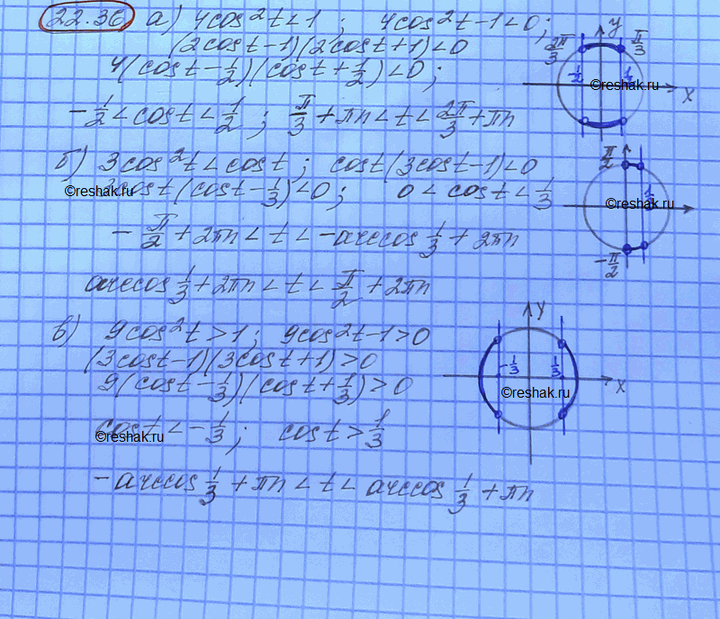 22.36 а) 4cos²t<1 ; 4cos²t-1<0;
(2cost-1)(2cost+1)<0
4(cost-1/2)(cost+1/2)<0;
-1/2<cost<1/2 ; π/3+πn<t<2π/3+πn
y
2π/3
π/3
-1/2
1/2
©reshak.ru
x
б) 3cos²t<cost; cost(3cost-1)<0
©reshak.ru
3cost(cost-1/3)<0; 0<cost<1/3
-π/2+2πn<t<-arccos 1/3+2πn
arccos 1/3+2πn<t<π/2+2πn
π/2
1/3
©reshak.ru
-π/2
в) 9cos²t>1; 9cos²t-1>0
(3cost-1)(3cost+1)>0
9(cost-1/3)(cost+1/3)>0
cost<-1/3; cost>1/3
©reshak.ru
-arccos 1/3+πn<t<arccos 1/3+πn
y
-1/3
1/3
©reshak.ru
x